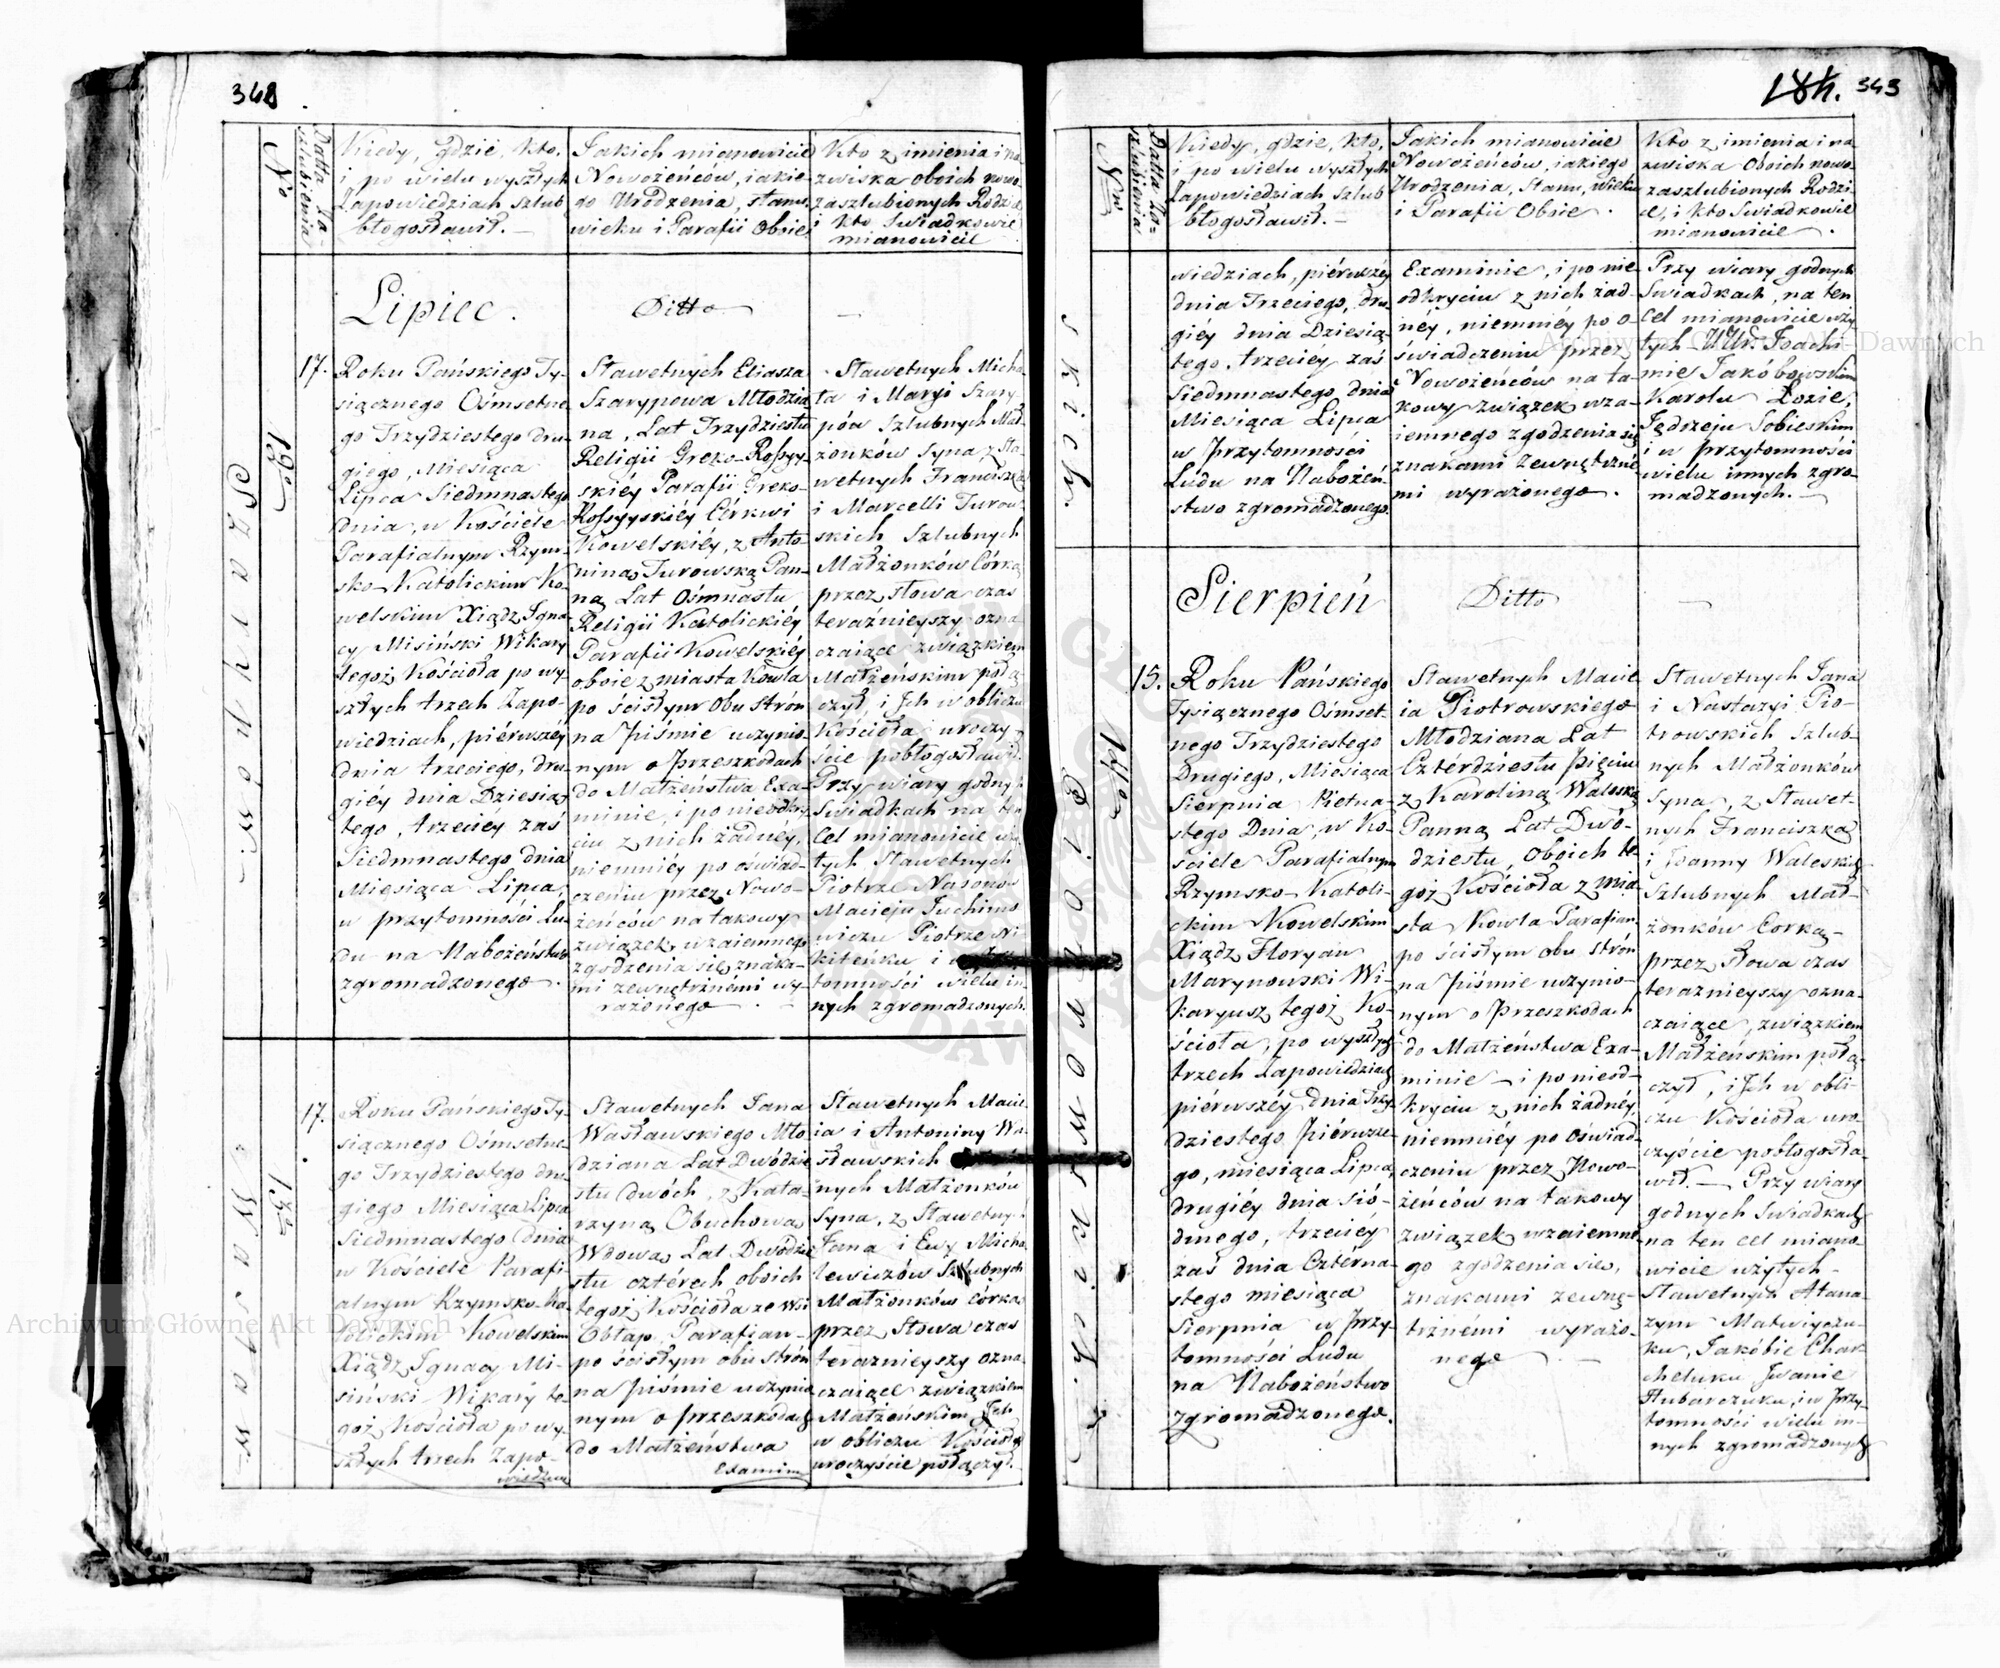 348
No
Datta Za-
szlubienia
Kiedy, gdzie, kto,
i po wielu wyszłych
Zapowiedziach szlub
błogosławił. —
Jakich mianowicie
Nowożeńców, iakie-
go Urodzenia, stanu,
wieku i Parafii Oboie
Kto z imienia i na-
zwiska oboich nowo-
zaszlubionych Rodzice
i kto Swiadkowie
mianowicie
Lipiec.
Ditto
12o
Szarypów.
17.
Roku Pańskiego Ty-
siącznego Ośmsetne-
go Trzydziestego dru-
giego, Miesiąca
Lipca Siedmnastego
Dnia, w Kościele
Parafialnym Rzym-
sko-Katolickim Ko-
welskim Xiądz Igna-
cy Misiński Wikary
tegoż Kościoła po wy-
szłych trzech Zapo-
wiedziach, piérwszéy
dnia trzeciego, dru-
giéy dnia Dziesią-
tego, trzeciéy zaś
Siedmnastego dnia
Miesiąca Lipca,
w przytomności Lu-
du na Nabożeństwo
zgromadzonego.
Sławetnych Eliasza
Szarypowa Młodzia-
na, Lat Trzydziestu
Religii Greko-Rossyy-
skiéy Parafii Greko-
Rossyyskiéy Cérkwi
Kowelskiéy, z Anto-
niną Turowską Pan-
ną Lat Ośmnastu
Religii Katolickiéy
Parafii Kowelskiéy
oboie z miasta Kowla
po ścisłym Obu strón
na piśmie uczynio-
nym o przeszkodach
do Małżeństwa Exa-
minie, i po nieodkry-
ciu z nich żadnéy,
niemniéy po oświad-
czeniu przez Nowo-
żeńców na takowy
związek wzaiemnego
zgodzenia się znaka-
mi zewnętrznémi wy-
rażonego
Sławetnych Micha-
ła i Maryi Szary-
pów szlubnych Mał-
żonków Syna z Sła-
wetnych Franciszka
i Marcelli Turow-
skich Szlubnych
Małżonków Córką
przez słowa czas
teraźnieyszy ozna-
czaiące związkiem
Małżeńskim połą-
czył, i Ich w obliczu
Kościoła uroczy-
ście pobłogosławił.
Przy wiary godnych
Swiadkach na ten
Cel mianowicie uży-
tych Sławetnych
Piotrze Nasonow
Macieju Juchimo-
wiczu Piotrze Ni-
kiteńku i
tomności wielu in-
nych zgromadzonych.
13o
Wasław-
17.
Roku Pańskiego Ty-
siącznego Ośmsetne-
go Trzydziestego dru-
giego Miesiąca Lipca
Siedmnastego dnia
w Kościele Parafi-
alnym Rzymsko-Ka-
tolickim Kowelskim
Xiądz Ignacy Mi-
siński Wikary te-
goż Kościoła po wy-
szłych trzech Zapo-
wiedzia
Sławetnych Jana
Wasławskiego Mło-
dziana Lat Dwódzie-
stu dwóch, z Kata-
rzyną Obuchową
Wdową Lat Dwódzie-
stu cztérech oboich
tegoż Kościoła ze Wsi
Obłap Parafian-
po ścisłym obu strón
na piśmie uczynio-
nym o przeszkodach
do Małżeństwa
Examin
Sławetnych Macie-
ia i Antoniny Wa-
sławskich
nych Małżonków
Syna, z Sławetnych
Jana i Ewy Micha-
lewiczów Szlubnych
Małżonków Córką
przez słowa czas
teraznieyszy ozna-
czaiące związkiem
Małżeńskim Ich
w obliczu Kościoła
uroczyście połączył.
184. 343
Nro
Datta Za-
szlubienia
Kiedy, gdzie, kto,
i po wielu wyszłych
Zapowiedziach, Szlub
błogosławił. —
Jakich mianowicie
Nowożeńców, iakiego
Urodzenia, Stanu, Wieku
i Parafii Oboie.
Kto z imienia i na-
zwiska Oboich nowo-
zaszlubionych Rodzi-
ce, i kto Swiadkowie
mianowicie.
skich.
wiedziach, piérwszéy
dnia Trzeciego, dru-
giéy dnia Dziesią-
tego, trzeciéy zaś
Siedmnastego dnia
Miesiąca Lipca
w przytomności
Ludu na Nabożeń-
stwo zgromadzonego.
Examinie, i po nie-
odkryciu z nich żad-
néy, niemniéy po o-
świadczeniu przez
Nowożeńców na ta-
kowy związek wza-
iemnego zgodzenia się
znakami zewnętrzné-
mi wyrażonego.
Przy wiary godnych
Swiadkach, na ten
Cel mianowicie uży-
tych WW. Joachi-
mie Jakóbowskim
Karolu Łozie,
Jędrzeju Sobieskim
i w przytomności
wielu innych zgro-
madzonych. —
Sierpień
Ditto
14o
Piotrowskich.
15.
Roku Pańskiego
Tysiącznego Ośmset-
nego Trzydziestego
Drugiego, Miesiąca
Sierpnia Pietna-
stego Dnia, w Ko-
ściele Parafialnym
Rzymsko-Katoli-
ckim Kowelskim
Xiądz Floryan
Marynowski Wi-
karyusz tegoż Ko-
ścioła, po wyszłych
trzech Zapowiedziach
piérwszéy dnia Trzy-
dziestego piérwsze-
go, miesiąca Lipca,
drugiéy dnia Sió-
dmego, trzeciéy
zaś dnia Cztérna-
stego miesiąca
Sierpnia w przy-
tomności Ludu
na Nabożeństwo
zgromadzonego.
Sławetnych Macie-
ia Piotrowskiego
Młodziana Lat
Czterdziestu pięciu
z Karoliną Waleską
Panną Lat Dwó-
dziestu, Oboich te-
goż Kościoła z mia-
sta Kowla Parafian-
po ścisłym obu strón
na piśmie uczynio-
nym o przeszkodach
do Małżeństwa Exa-
minie — i po nieod-
kryciu z nich żadnéy,
niemniéy po Oświad-
czeniu przez Nowo-
żeńców na takowy
związek wzaiemne-
go zgodzenia sie,
znakami zewnę-
trznémi wyrażo-
nego
Sławetnych Jana
i Nastazyi Pio-
trowskich Szlub-
nych Małżonków
Syna, z Sławet-
nych Franciszka
i Joanny Waleskich
Szlubnych Mał-
żonków Corką-
przez słowa czas
teraznieyszy ozna-
czaiące, związkiem
Małżeńskim połą-
czył, i Ich w obli-
czu Kościoła uro-
czyście pobłogosła-
wił. — Przy wiary
godnych Swiadkach
na ten cel miano-
wicie użytych-
Sławetnych Atana-
zym Matwiyczu-
ku, Jakóbie Char-
cheluku Iwanie
Hubarczuku, i w przy-
tomności wielu in-
nych zgromadzonych
Archiwum Główne Akt Dawnych
Archiwum Główne Akt Dawnych